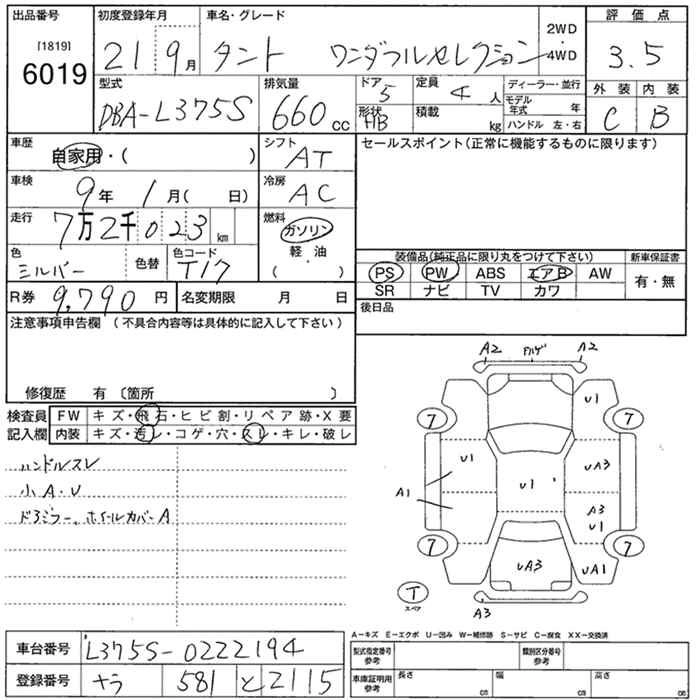 出品番号 初度登録年月 車名・グレード 評価点
[1819]
6019 21 9月 タント ワンダフルセレクション 2WD・4WD 3.5
型式 排気量 ドア 定員 ディーラー・並行 外装 内装
DBA-L375S 660cc 5 4人 モデル年式 年 C B
形状 HB 積載 kg ハンドル 左・右
車歴 自家用・( ) シフト AT セールスポイント(正常に機能するものに限ります)
車検 9年 1月( 日) 冷房 AC
走行 7万2千023km 燃料 ガソリン
軽・油
( )
色 色替 色コード 装備品(純正品に限り丸をつけて下さい) 新車保証書
シルバー T17 PS PW ABS エアB AW 有・無
SR ナビ TV カワ
R券 9,790円 名変期限 月 日 後日品
注意事項申告欄 (不具合内容等は具体的に記入して下さい)
修復歴 有 〔箇所 〕
検査員 FW キズ・飛石・ヒビ割・リペア跡・X要
記入欄 内装 キズ・汚レ・コゲ・穴・スレ・キレ・破レ
ハンドルスレ
小A・U
ドアミラー、ホイールカバーA
A2 アルゲ A2
U1
7 7
U1 U1 UA3
A1 A3
U1
7 7
UA3 UA1
T
スペア
A3
A-キズ E-エクボ U-凹み W-補修跡 S-サビ C-腐食 XX-交換済
車台番号 L375S-0222194 型式指定番号 参考 類別区分番号 参考
登録番号 ナラ 581 と 2115 車庫証明用 参考 長さ cm 幅 cm 高さ cm